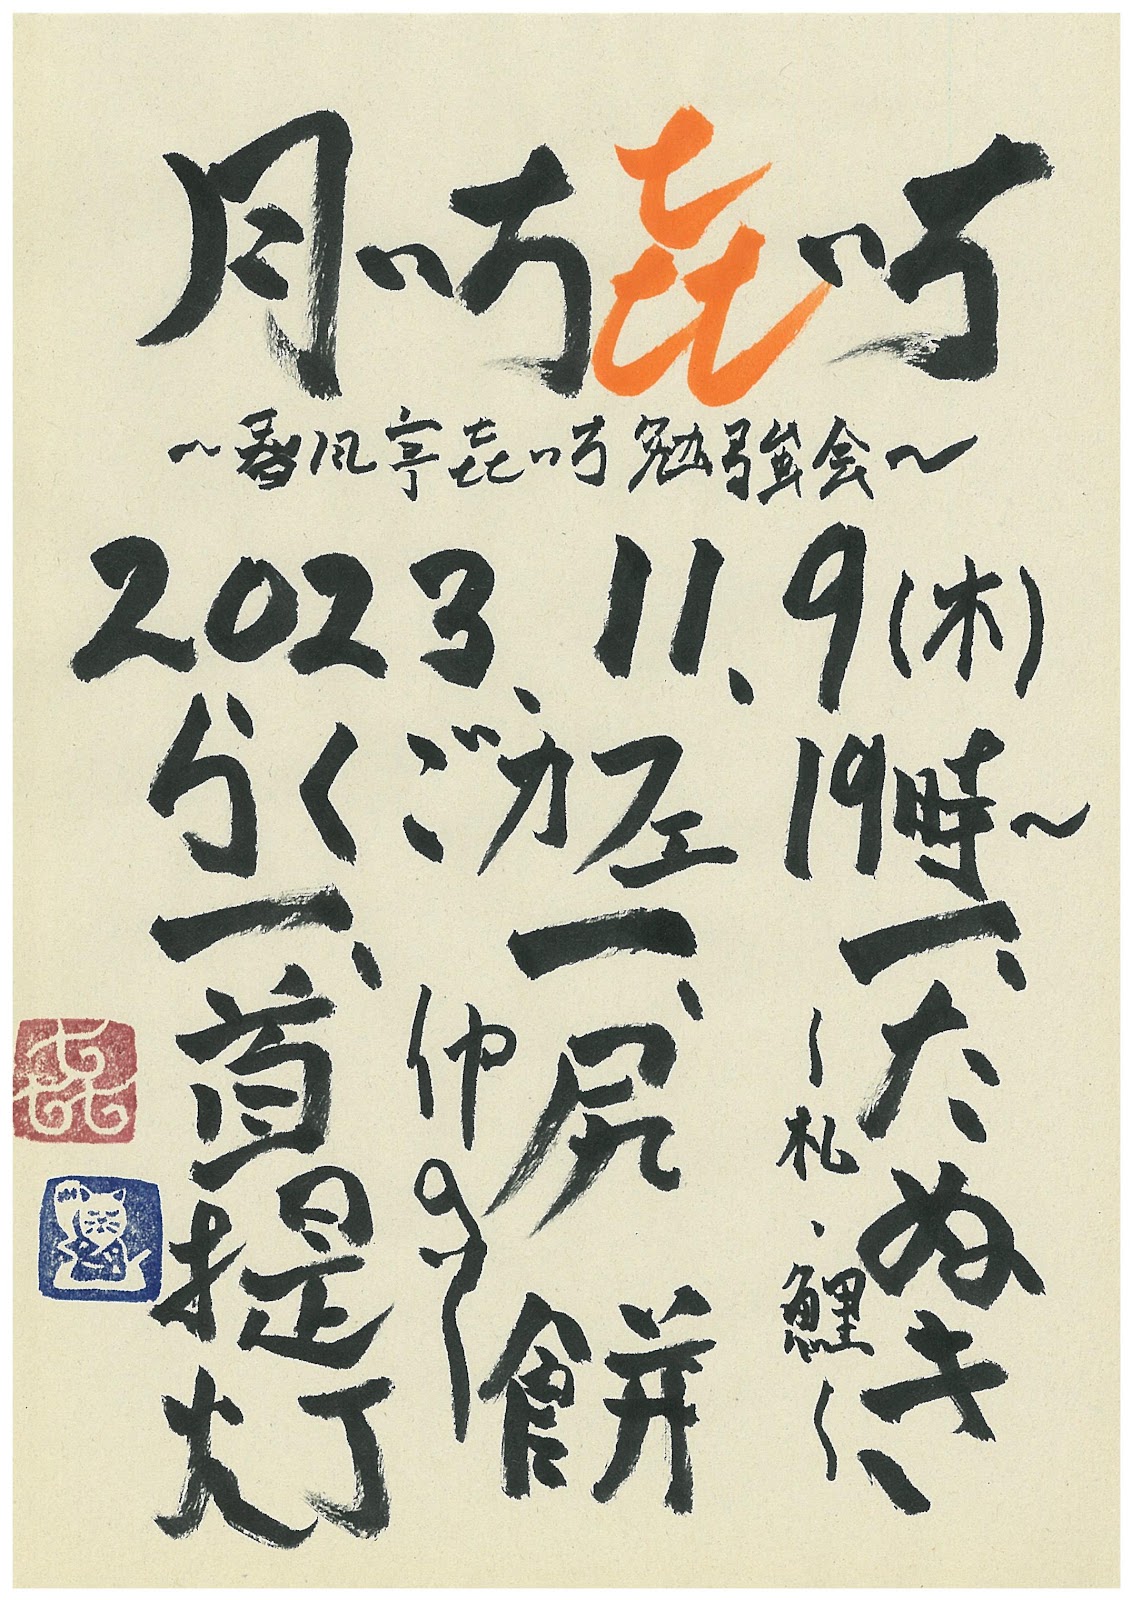 月いち㐂いち
～春風亭㐂いち勉強会～
2023.11.9(木)
らくごカフェ 19時～
一、たぬき
～札・鯉～
一、尻餅
一、首提灯